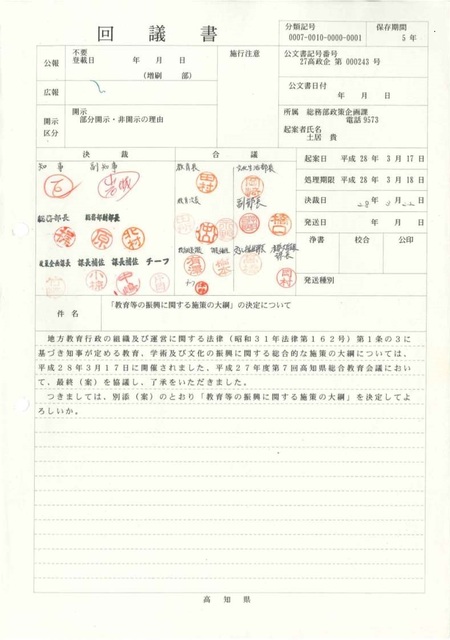 回議書
分類記号
0007-0010-0000-0001
保存期間
5年
公報
不要
登載日 年 月 日
(増刷 部)
施行注意
公文書記号番号
27高政企 第 000243 号
広報
公文書日付
年 月 日
開示
区分
開示
部分開示・非開示の理由
所属 総務部政策企画課
電話 9573
起案者氏名
土居 貴
決裁
合議
起案日 平成 28年 3月 17日
知事 副知事
教育長
処理期限 平成 28年 3月 18日
副部長
決裁日
総務部長 総務部副部長
発送日 年 月 日
浄書 校合 公印
政策企画課長 課長補佐 課長補佐 チーフ
発送種別
件名
「教育等の振興に関する施策の大綱」の決定について
地方教育行政の組織及び運営に関する法律(昭和31年法律第162号)第1条の3に
基づき知事が定める教育、学術及び文化の振興に関する総合的な施策の大綱については、
平成28年3月17日に開催されました、平成27年度第7回高知県総合教育会議におい
て、最終(案)を協議し、了承をいただきました。
つきましては、別添(案)のとおり「教育等の振興に関する施策の大綱」を決定してよ
ろしいか。
高知県